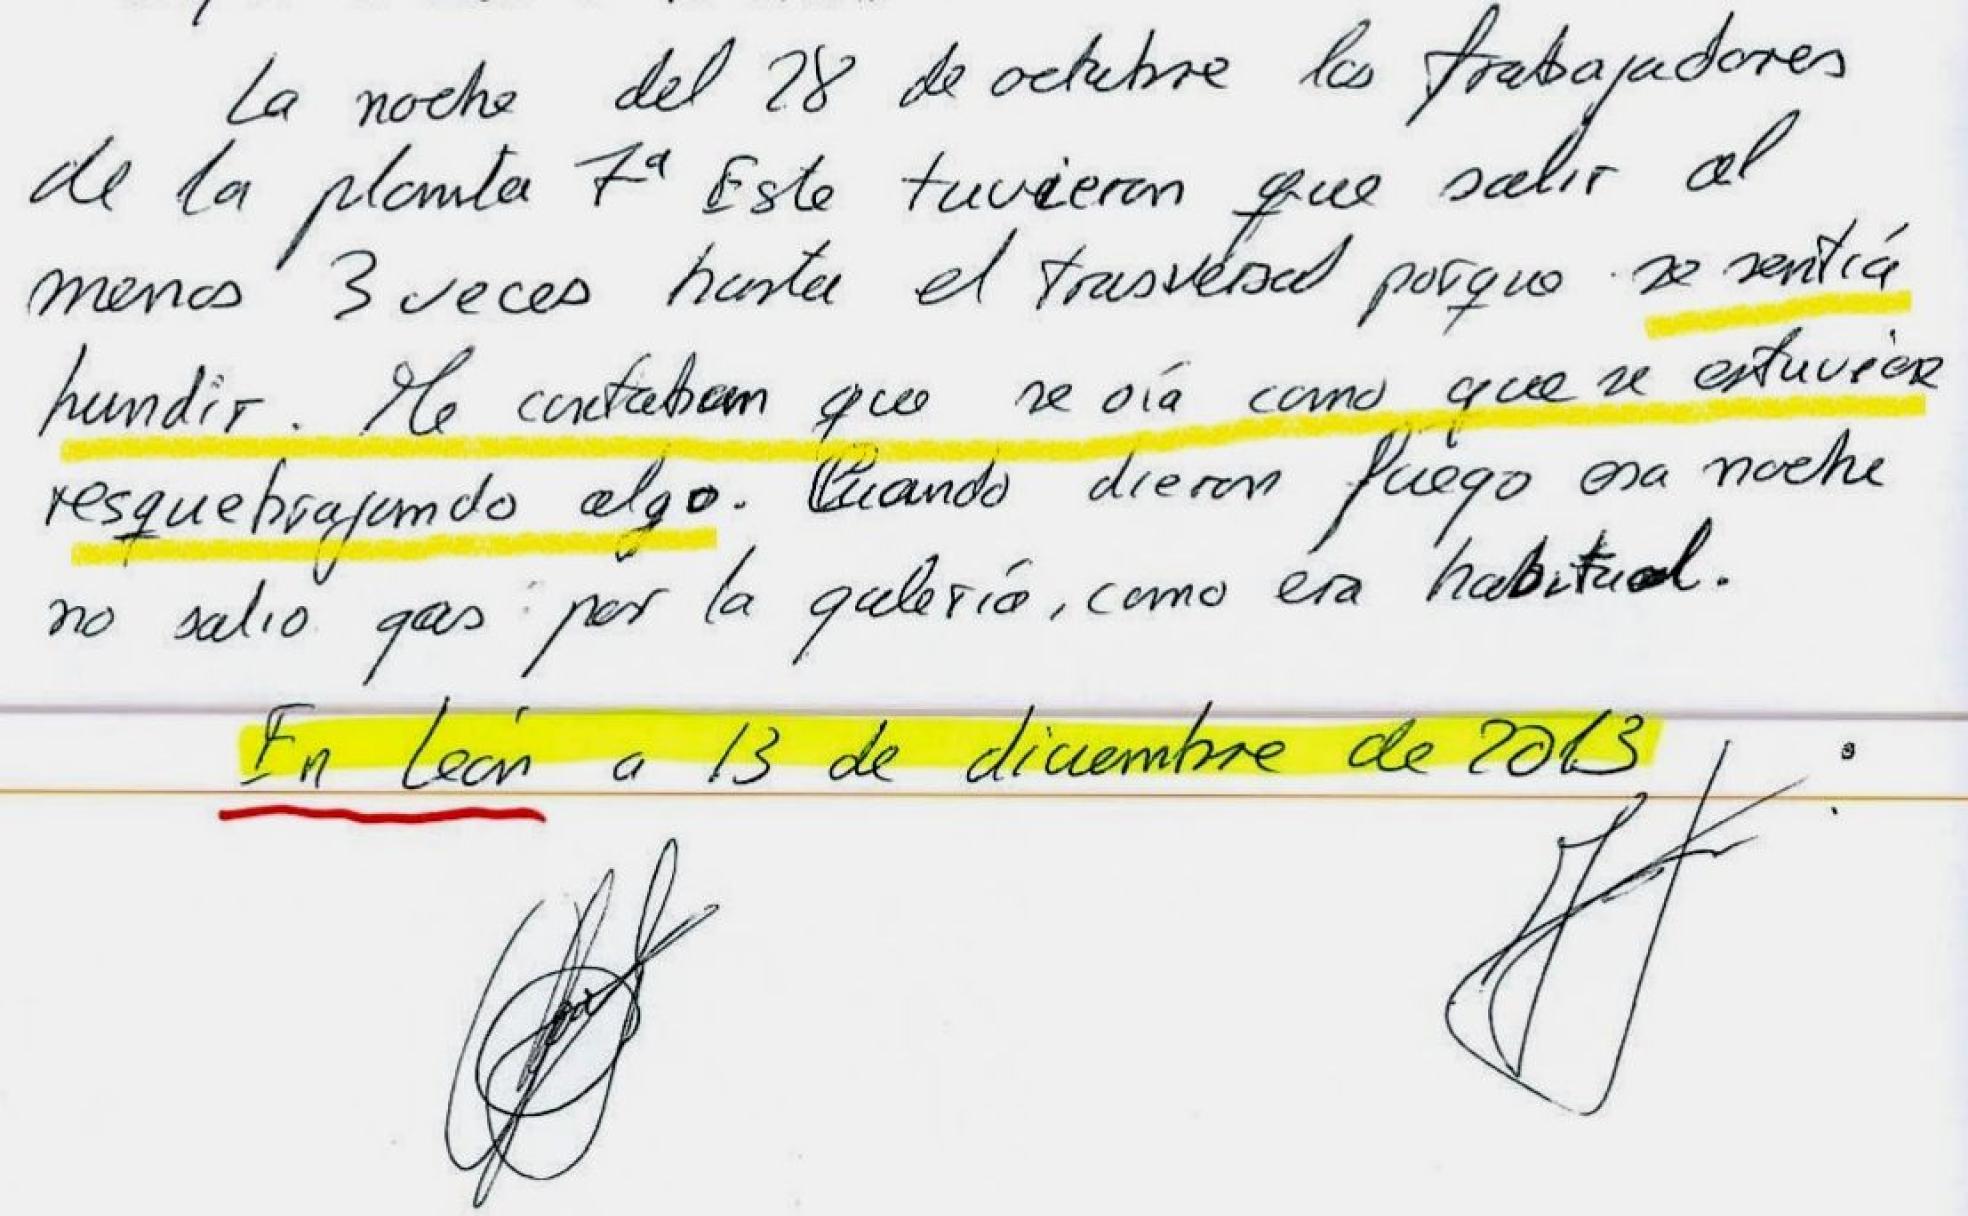 La noche del 28 de octubre los trabajadores
de la planta 7ª Este tuvieron que salir al
menos 3 veces hasta el trasversal porque se sentía
hundir. Me contaban que se oía como que se estuviese
resquebrajando algo. Cuando dieron fuego esa noche
no salio gas por la galería, como era habitual.
En León a 13 de diciembre de 2013